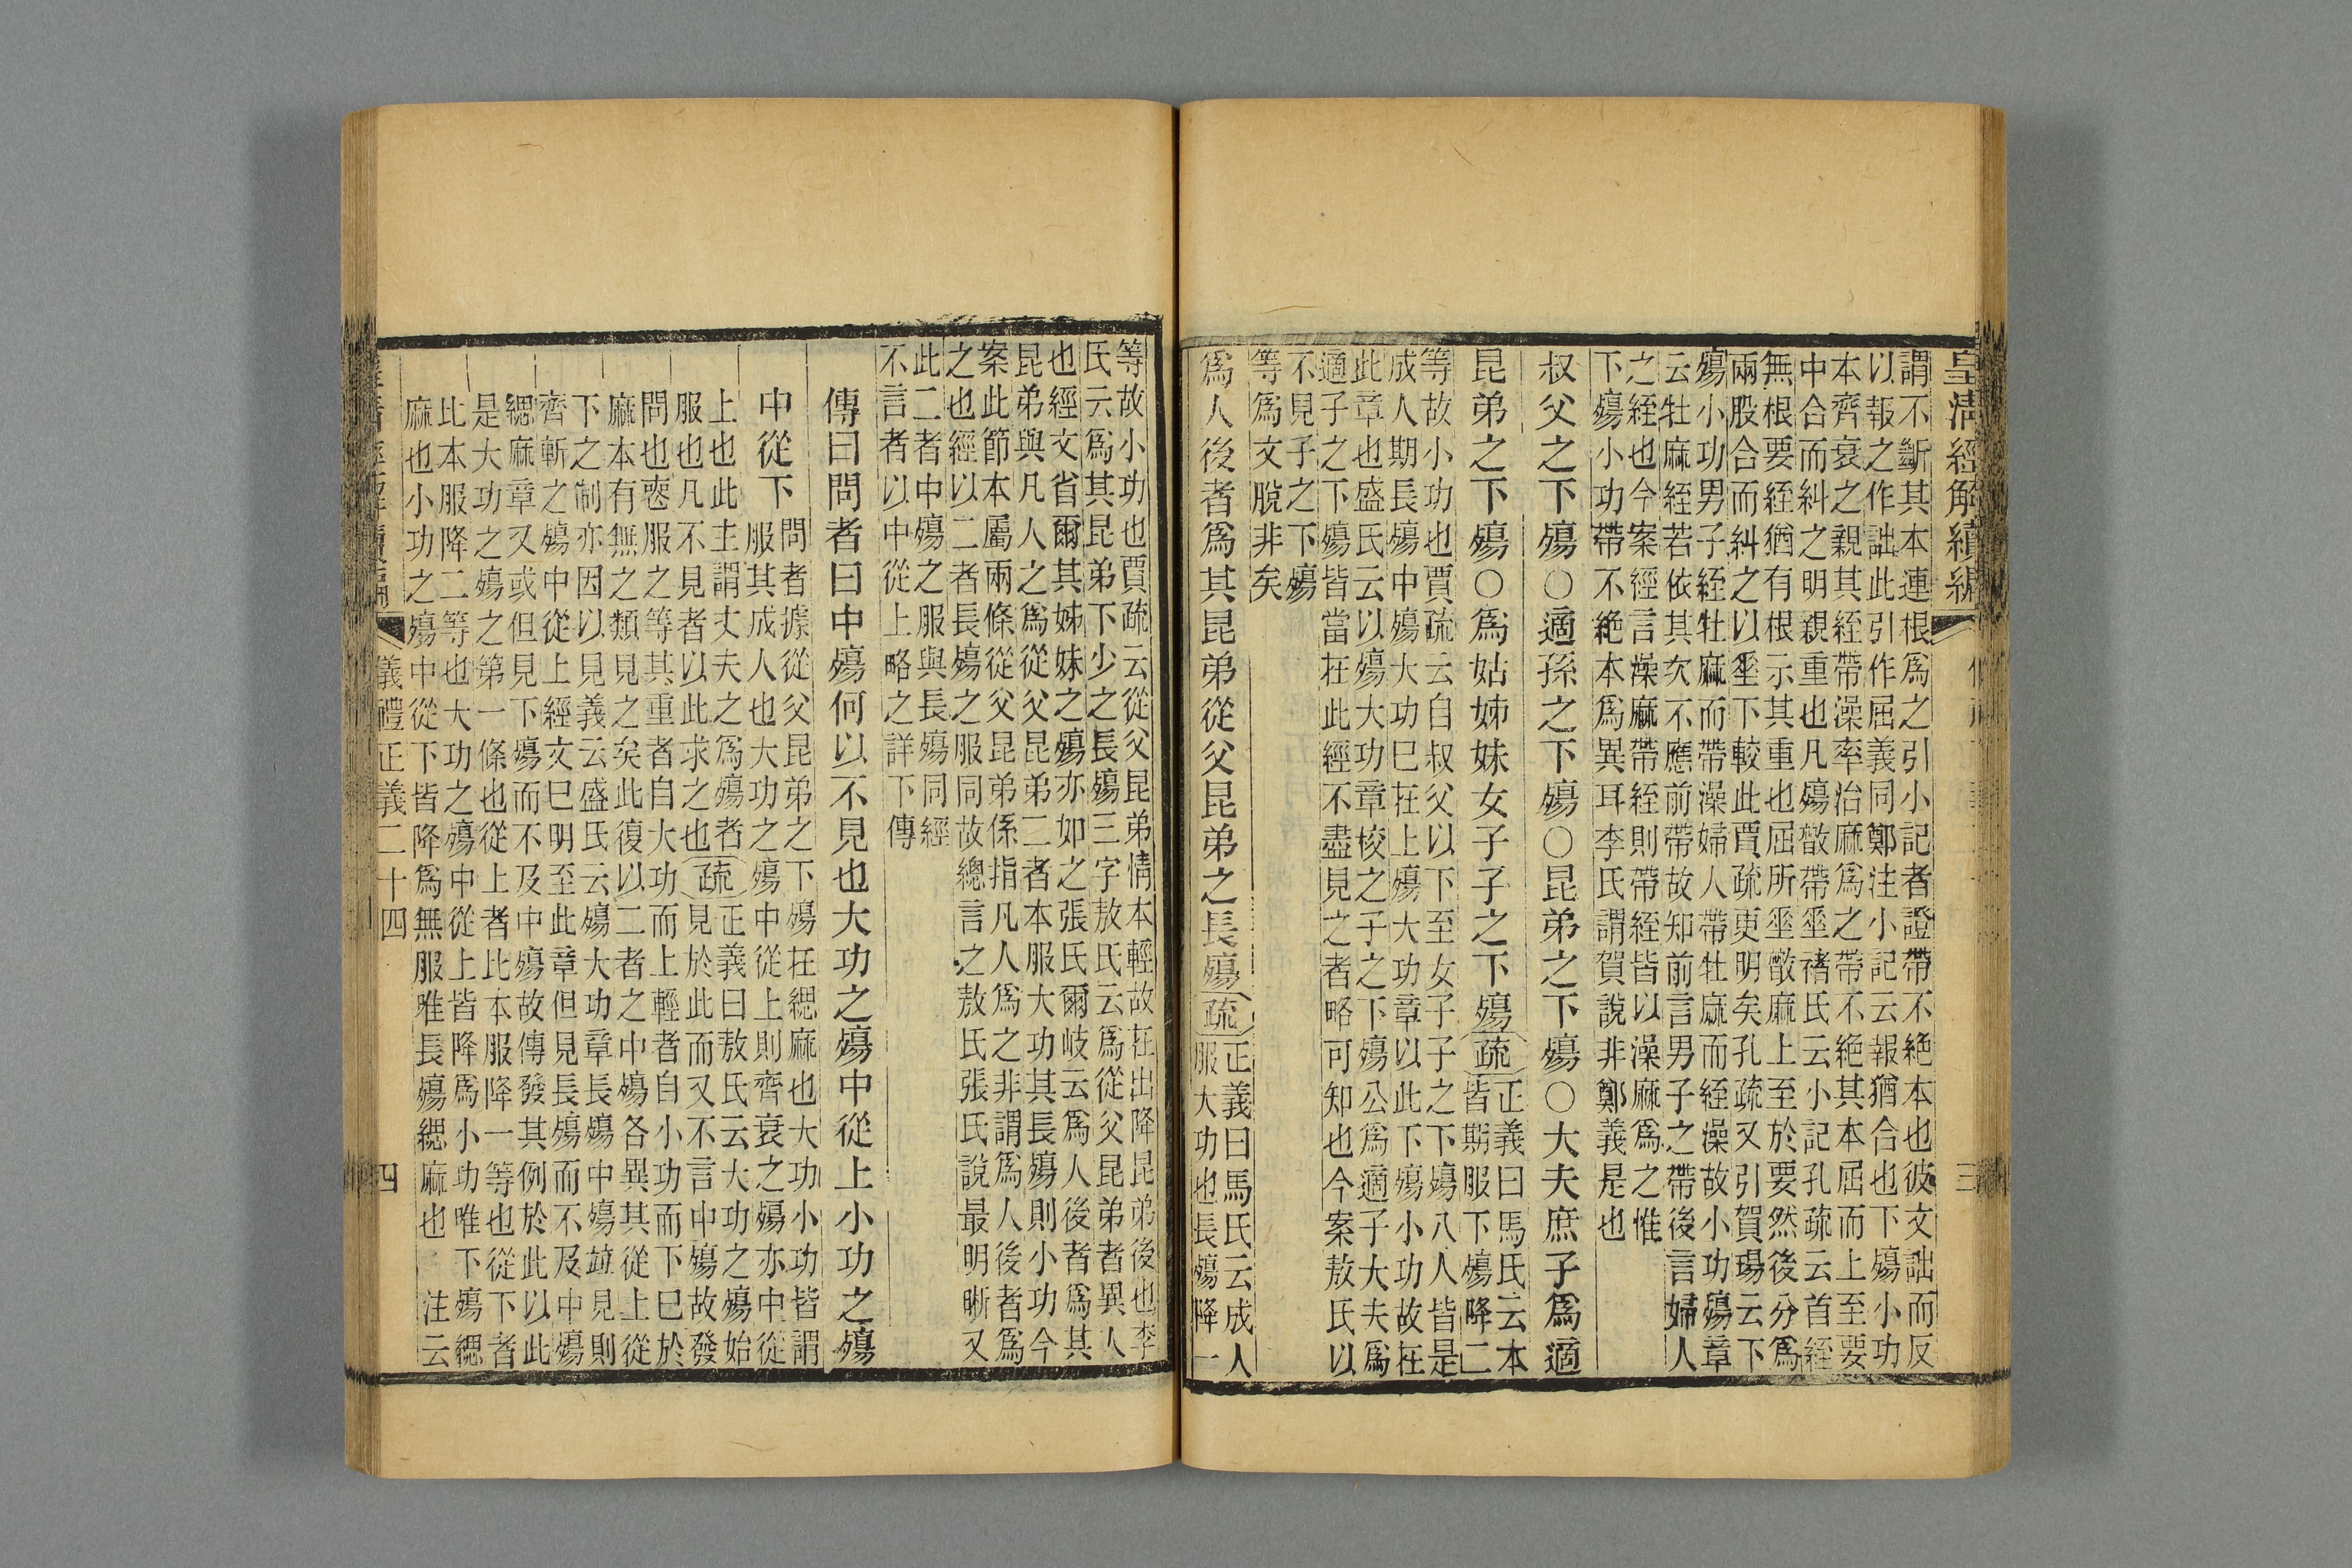 皇清經解續編
三
謂不斷其本連根爲之引小記者證帶不絕本也彼文詘而反
以報之作詘此引作屈義同鄭注小記云報猶合也下殤小功
本齊衰之親其絰帶澡率治麻爲之帶不絕其本屈而上至要
中合而糾之明親重也凡殤散帶垂禇氏云小記孔疏云首絰
無根要絰猶有根示其重也屈所垂散麻上至於要然後分爲
兩股合而糾之以垂下較此賈疏更明矣孔疏又引賀瑒云下
殤小功男子絰牡麻而帶澡婦人帶牡麻而絰澡故小功殤章
云牡麻絰若依其次不應前帶故知前言男子之帶後言婦人
之絰也今案經言澡麻帶絰則帶絰皆以澡麻爲之惟
下殤小功帶不絶本爲異耳李氏謂賀說非鄭義是也
叔父之下殤○適孫之下殤○昆弟之下殤○大夫庶子爲適
昆弟之下殤○爲姑姊妹女子子之下殤疏
正義曰馬氏云本
皆期服下殤降二
等故小功也賈疏云自叔父以下至女子子之下殤八人皆是
成人期長殤中殤大功已在上殤大功章以此下殤小功故在
此章也盛氏云以殤大功章校之子之下殤公爲適子大夫爲
適子之下殤皆當在此經不盡見之者略可知也今案敖氏以
不見子之下殤
等爲文脫非矣
爲人後者爲其昆弟從父昆弟之長殤疏
正義曰馬氏云成人
服大功也長殤降一
等故小功也賈疏云從父昆弟情本輕故在出降昆弟後也李
氏云爲其昆弟下少之長殤三字敖氏云爲從父昆弟者異人
也經文省爾其姊妹之殤亦如之張氏爾岐云爲人後者爲其
昆弟與凡人之爲從父昆弟二者本服大功其長殤則小功今
案此節本屬兩條從父昆弟係指凡人爲之非謂爲人後者爲
之也經以二者長殤之服同故總言之敖氏張氏說最明晰又
此二者中殤之服與長殤同經
不言者以中從上略之詳下傳
傳曰問者曰中殤何以不見也大功之殤中從上小功之殤
中從下
問者據從父昆弟之下殤在緦麻也大功小功皆謂
服其成人也大功之殤中從上則齊衰之殤亦中從
上也此主謂丈夫之爲殤者
服也凡不見者以此求之也
疏
正義曰敖氏云大功之殤始
見於此而又不言中殤故發
問也喪服之等其重者自大功而上輕者自小功而下已於
麻本有無之類見之矣此復以二者之中殤各異其從上從
下之制亦因以見義云盛氏云殤大功章長殤中殤竝見則
齊斬之殤中從上經文已明至此章但見長殤而不及中殤
緦麻章又或但見下殤而不及中殤故傳發其例於此以此
是大功之殤之第一條也從上者比本服降一等也從下者
比本服降二等也大功之殤中從上皆降爲小功唯下殤緦
麻也小功之殤中從下皆降爲無服唯長殤緦麻也 注云
儀禮正義二十四
四